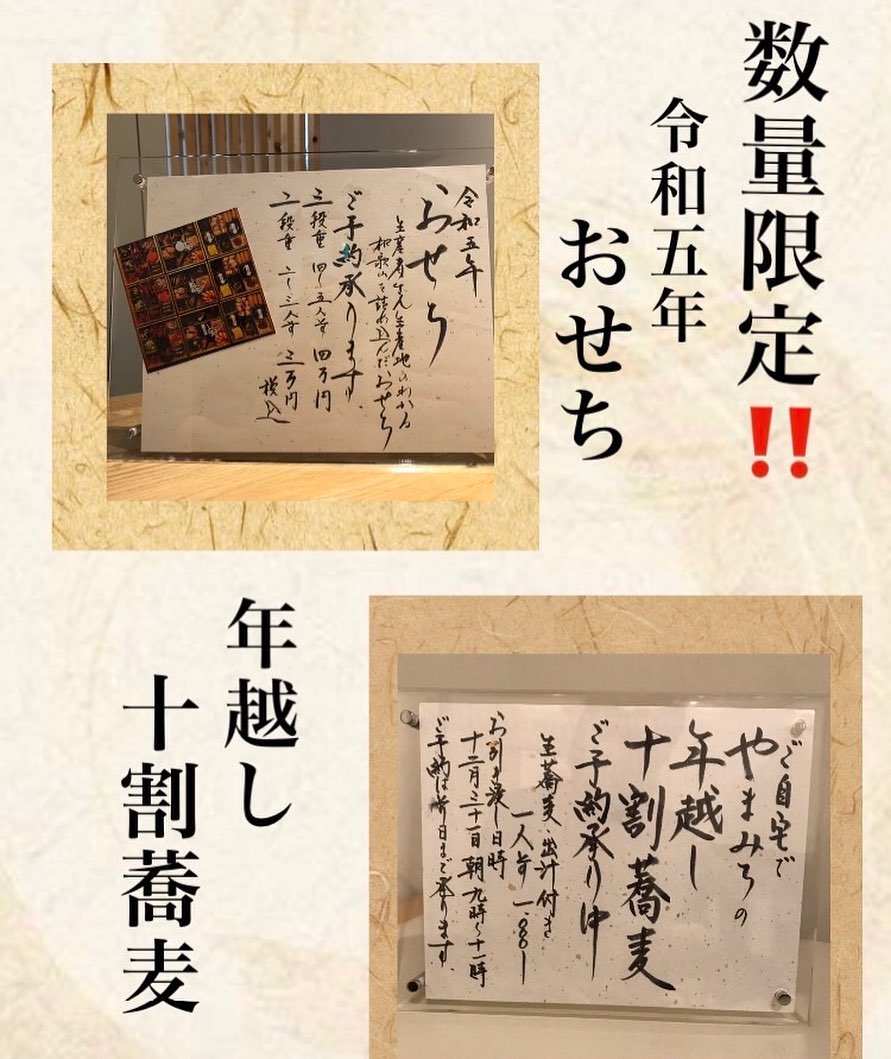 数量限定‼
令和五年
おせち
令和五年
おせち
生産者さん生産地のわかる
和歌山を詰め込んだおせち
ご予約承ります
三段重 四〜五人前 四万円
二段重 二〜三人前 三万円
税込
年越し
十割蕎麦
ご自宅で
やまみちの
年越し
十割蕎麦
ご予約承り中
生蕎麦、出汁付き
一人前 一、〇〇〇-
お引き渡し日時
十二月三十一日 朝九時〜十一時
ご予約は 日まで承ります